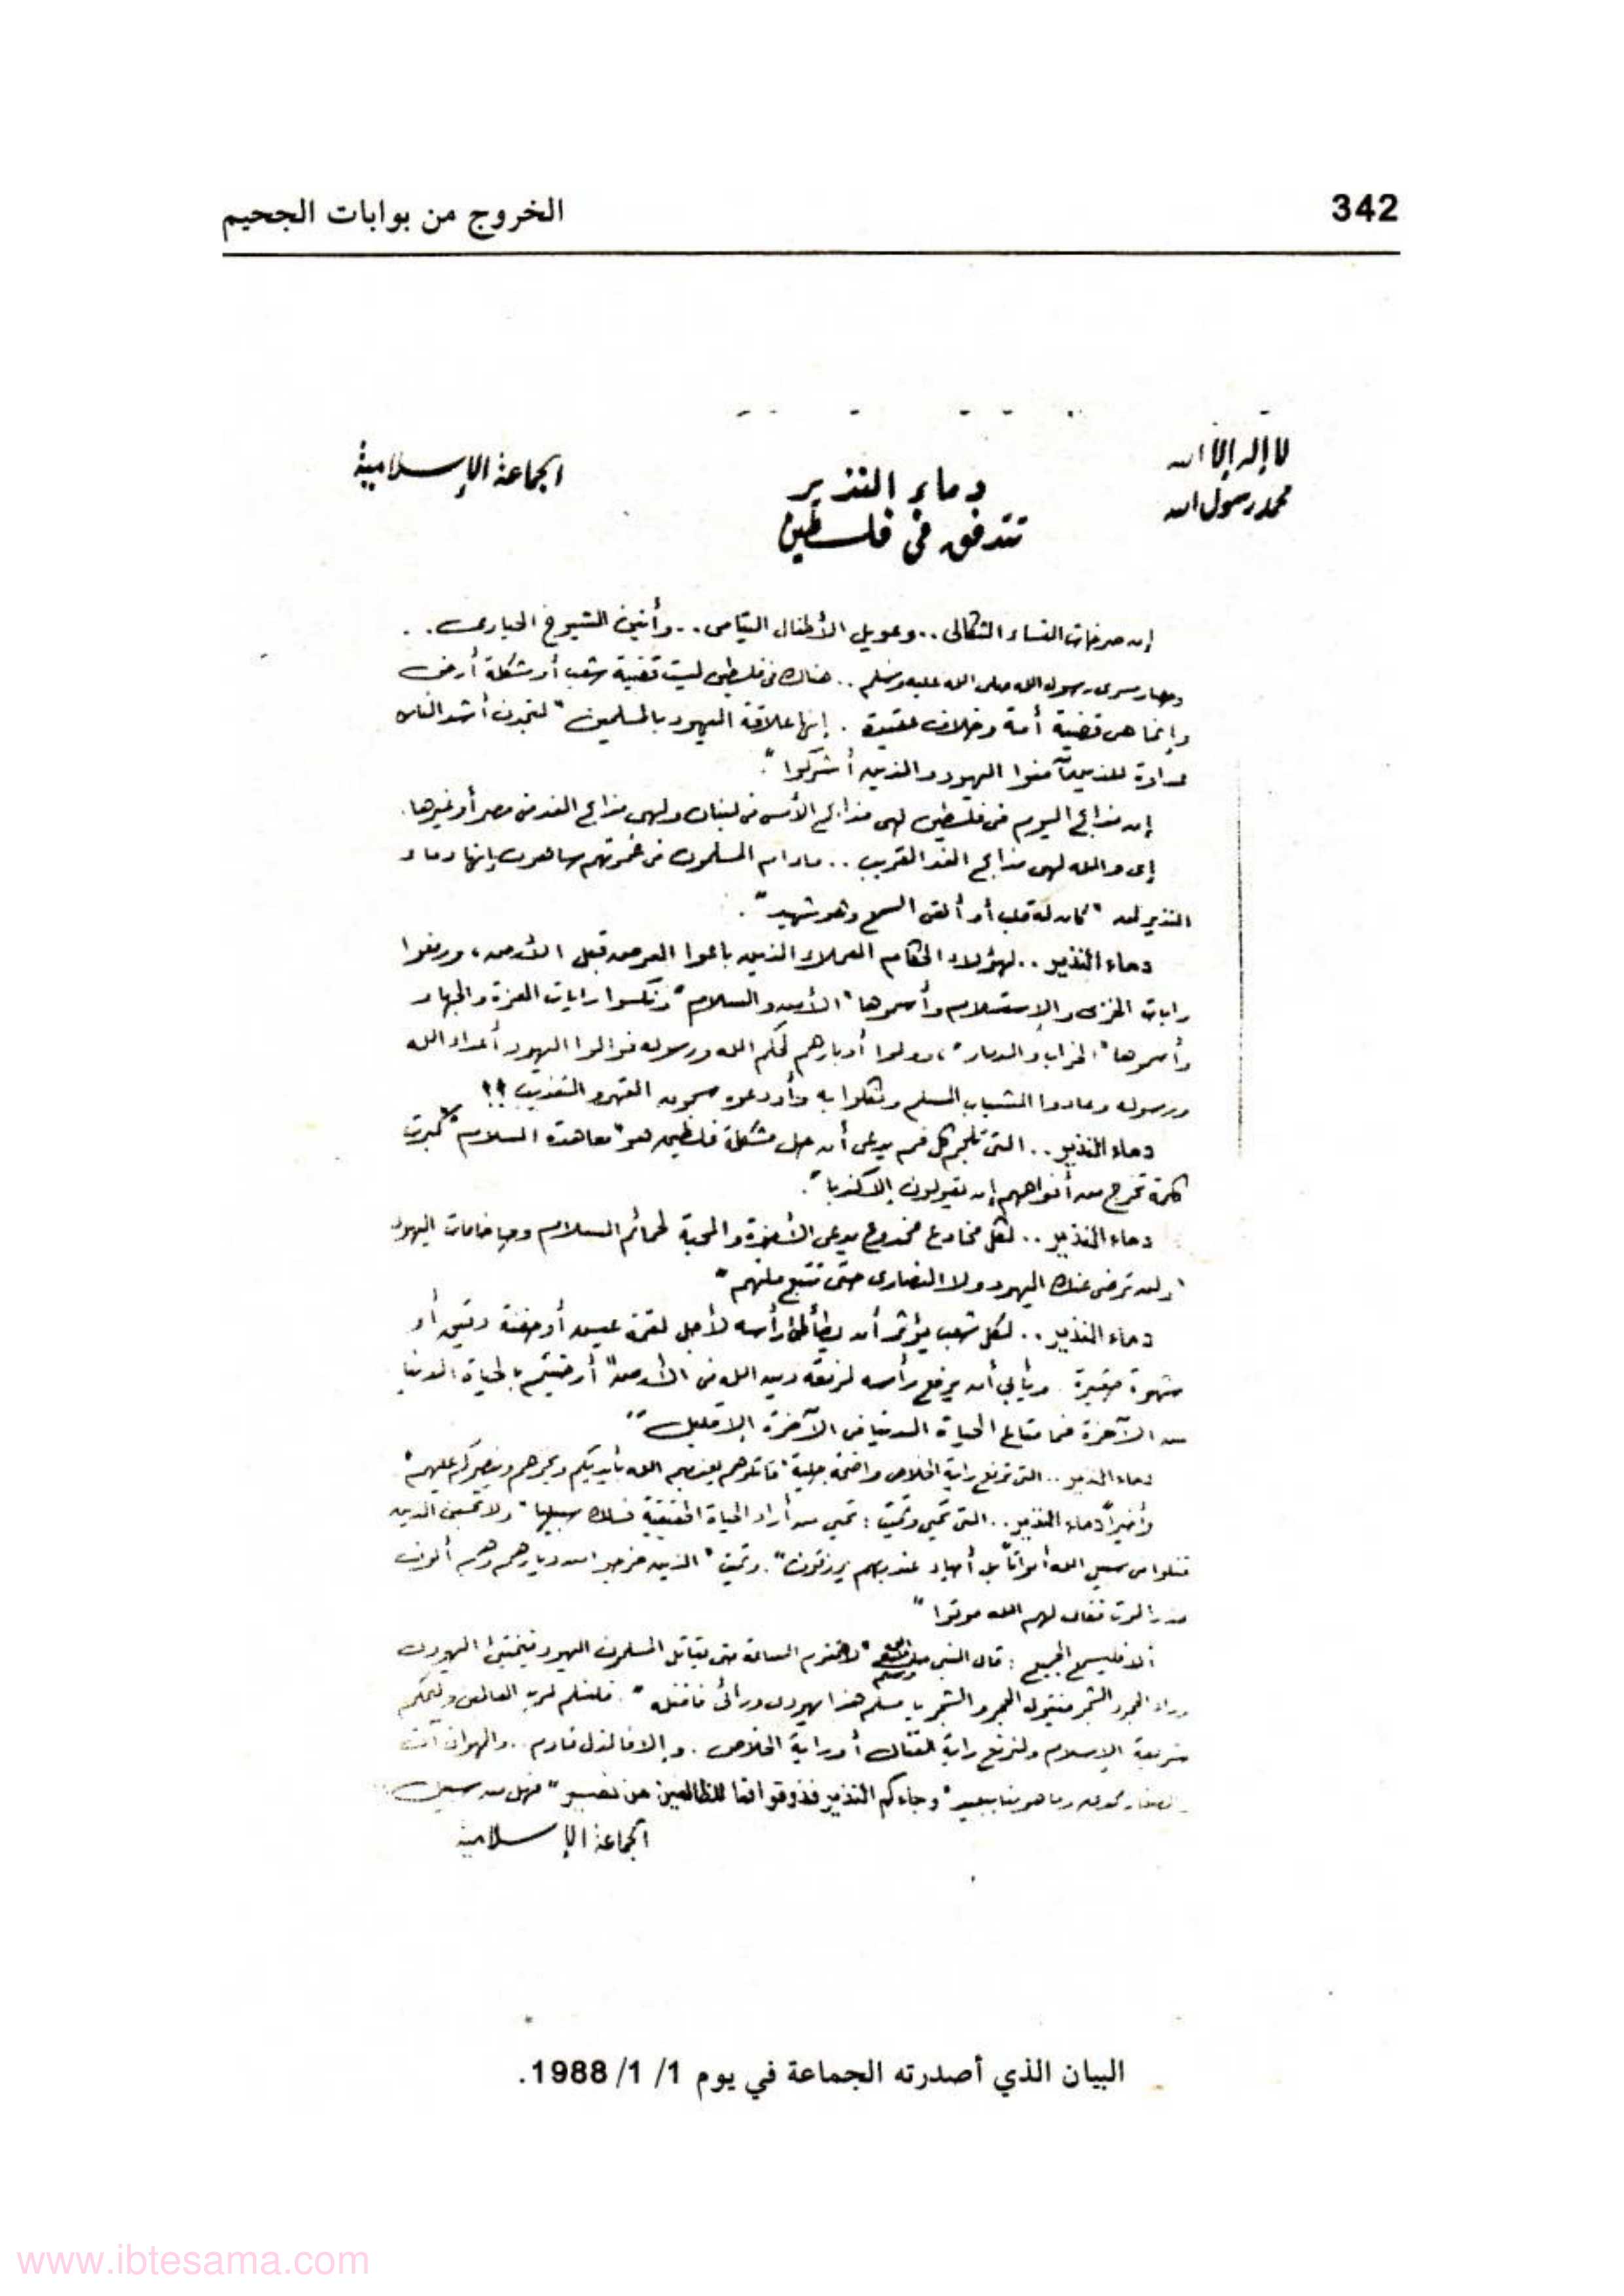 342
الخروج من بوابات الجحيم
لا إله إلا الله
محمد رسول الله
الجماعة الإسلامية
دماء النذير
تتدفق في فلسطين
إن صرخات النساء الثكالى .. وعويل الأطفال اليتامى .. وأنين الشيوخ الحيارى ..
مسرى رسول الله صلى الله عليه وسلم .. هناك في فلسطين ليست قضية شعب أو مشكلة أرض
وإنما هى قضية أمة وخلاف عقيدة . إنها علاقة اليهود بالمسلمين "لتجدن أشد الناس
عداوة للذين آمنوا اليهود والذين أشركوا".
إن مذابح اليوم فى فلسطين لهى مذابح الأمس فى لبنان ولهى مذابح الغد فى مصر أو غيرها.
إى والله لهى مذابح الغد القريب .. مادام المسلمون فى غمرتهم ساهون إنها دماء
النذير لمن "كان له قلب أو ألقى السمع وهو شهيد".
دماء النذير .. لهؤلاء الحكام العملاء الذين باعوا العرض قبل الأرض، ورفعوا
رايات الخزى والإستسلام وأسموها "الأمن والسلام" ونكسوا رايات العزة والجهاد
وأسموها "الخراب والدمار"، وولوا أدبارهم لحكم الله ورسوله فوالوا اليهود أعداء الله
ورسوله وعادوا الشباب المسلم ونكلوا به وأودعوه سجون القهر والتعذيب !!
دماء النذير .. التى تلجم كل فم يدعى أن حل مشكلة فلسطين هو "معاهدة السلام" "كبرت
كلمة تخرج من أفواههم إن يقولون إلا كذبا".
دماء النذير .. لكل مخادع مخدوع يدعى الأخوة والمحبة لحمائم السلام وحاخامات اليهود
"ولن ترضى عنك اليهود ولا النصارى حتى تتبع ملتهم"
دماء النذير .. لكل شعب يؤثر أن يطأطئ رأسه لأجل لقمة عيش أو حفنة دقيق أو
شهوة حقيرة . ويأبى أن يرفع رأسه لرفعة دين الله فى الأرض "أرضيتم بالحياة الدنيا
من الآخرة فما متاع الحياة الدنيا فى الآخرة إلا قليل"
دماء النذير .. التى ترفع راية الخلاص واضحة جلية "قاتلوهم يعذبهم الله بأيديكم ويخزهم وينصركم عليهم"
وأخيراً دماء النذير .. التى تحيى وتميت : تحيى من أراد الحياة الحقيقية فسلك سبيلها "ولا تحسبن الذين
قتلوا فى سبيل الله أمواتاً بل أحياء عند ربهم يرزقون". وتميت "الذين خرجوا من ديارهم وهم ألوف
حذر الموت فقال لهم الله موتوا"
ألا فليسمع الجميع : قال النبى صلى الله عليه وسلم "لا تقوم الساعة حتى يقاتل المسلمون اليهود فيختبئ اليهودى
وراء الحجر والشجر فيقول الحجر والشجر يا مسلم هذا يهودى ورائى فاقتله". فلنسلم لرب العالمين ولنحكم
شريعة الإسلام ولنرفع راية القتال أو راية الخلاص . وإلا فالذل قادم .. والهوان آت
وما هو منا ببعيد "وجاءكم النذير فذوقوا فما للظالمين من نصير" فهل من سبيل ..
الجماعة الإسلامية
البيان الذي أصدرته الجماعة في يوم 1/ 1/ 1988.
www.ibtesama.com